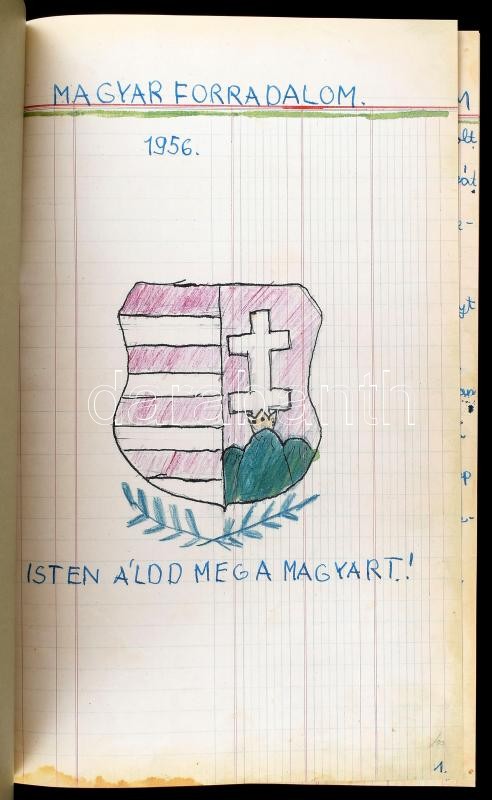 MAGYAR FORRADALOM.
1956.
darabanth
ISTEN ÁLDD MEG A MAGYART.!
1.